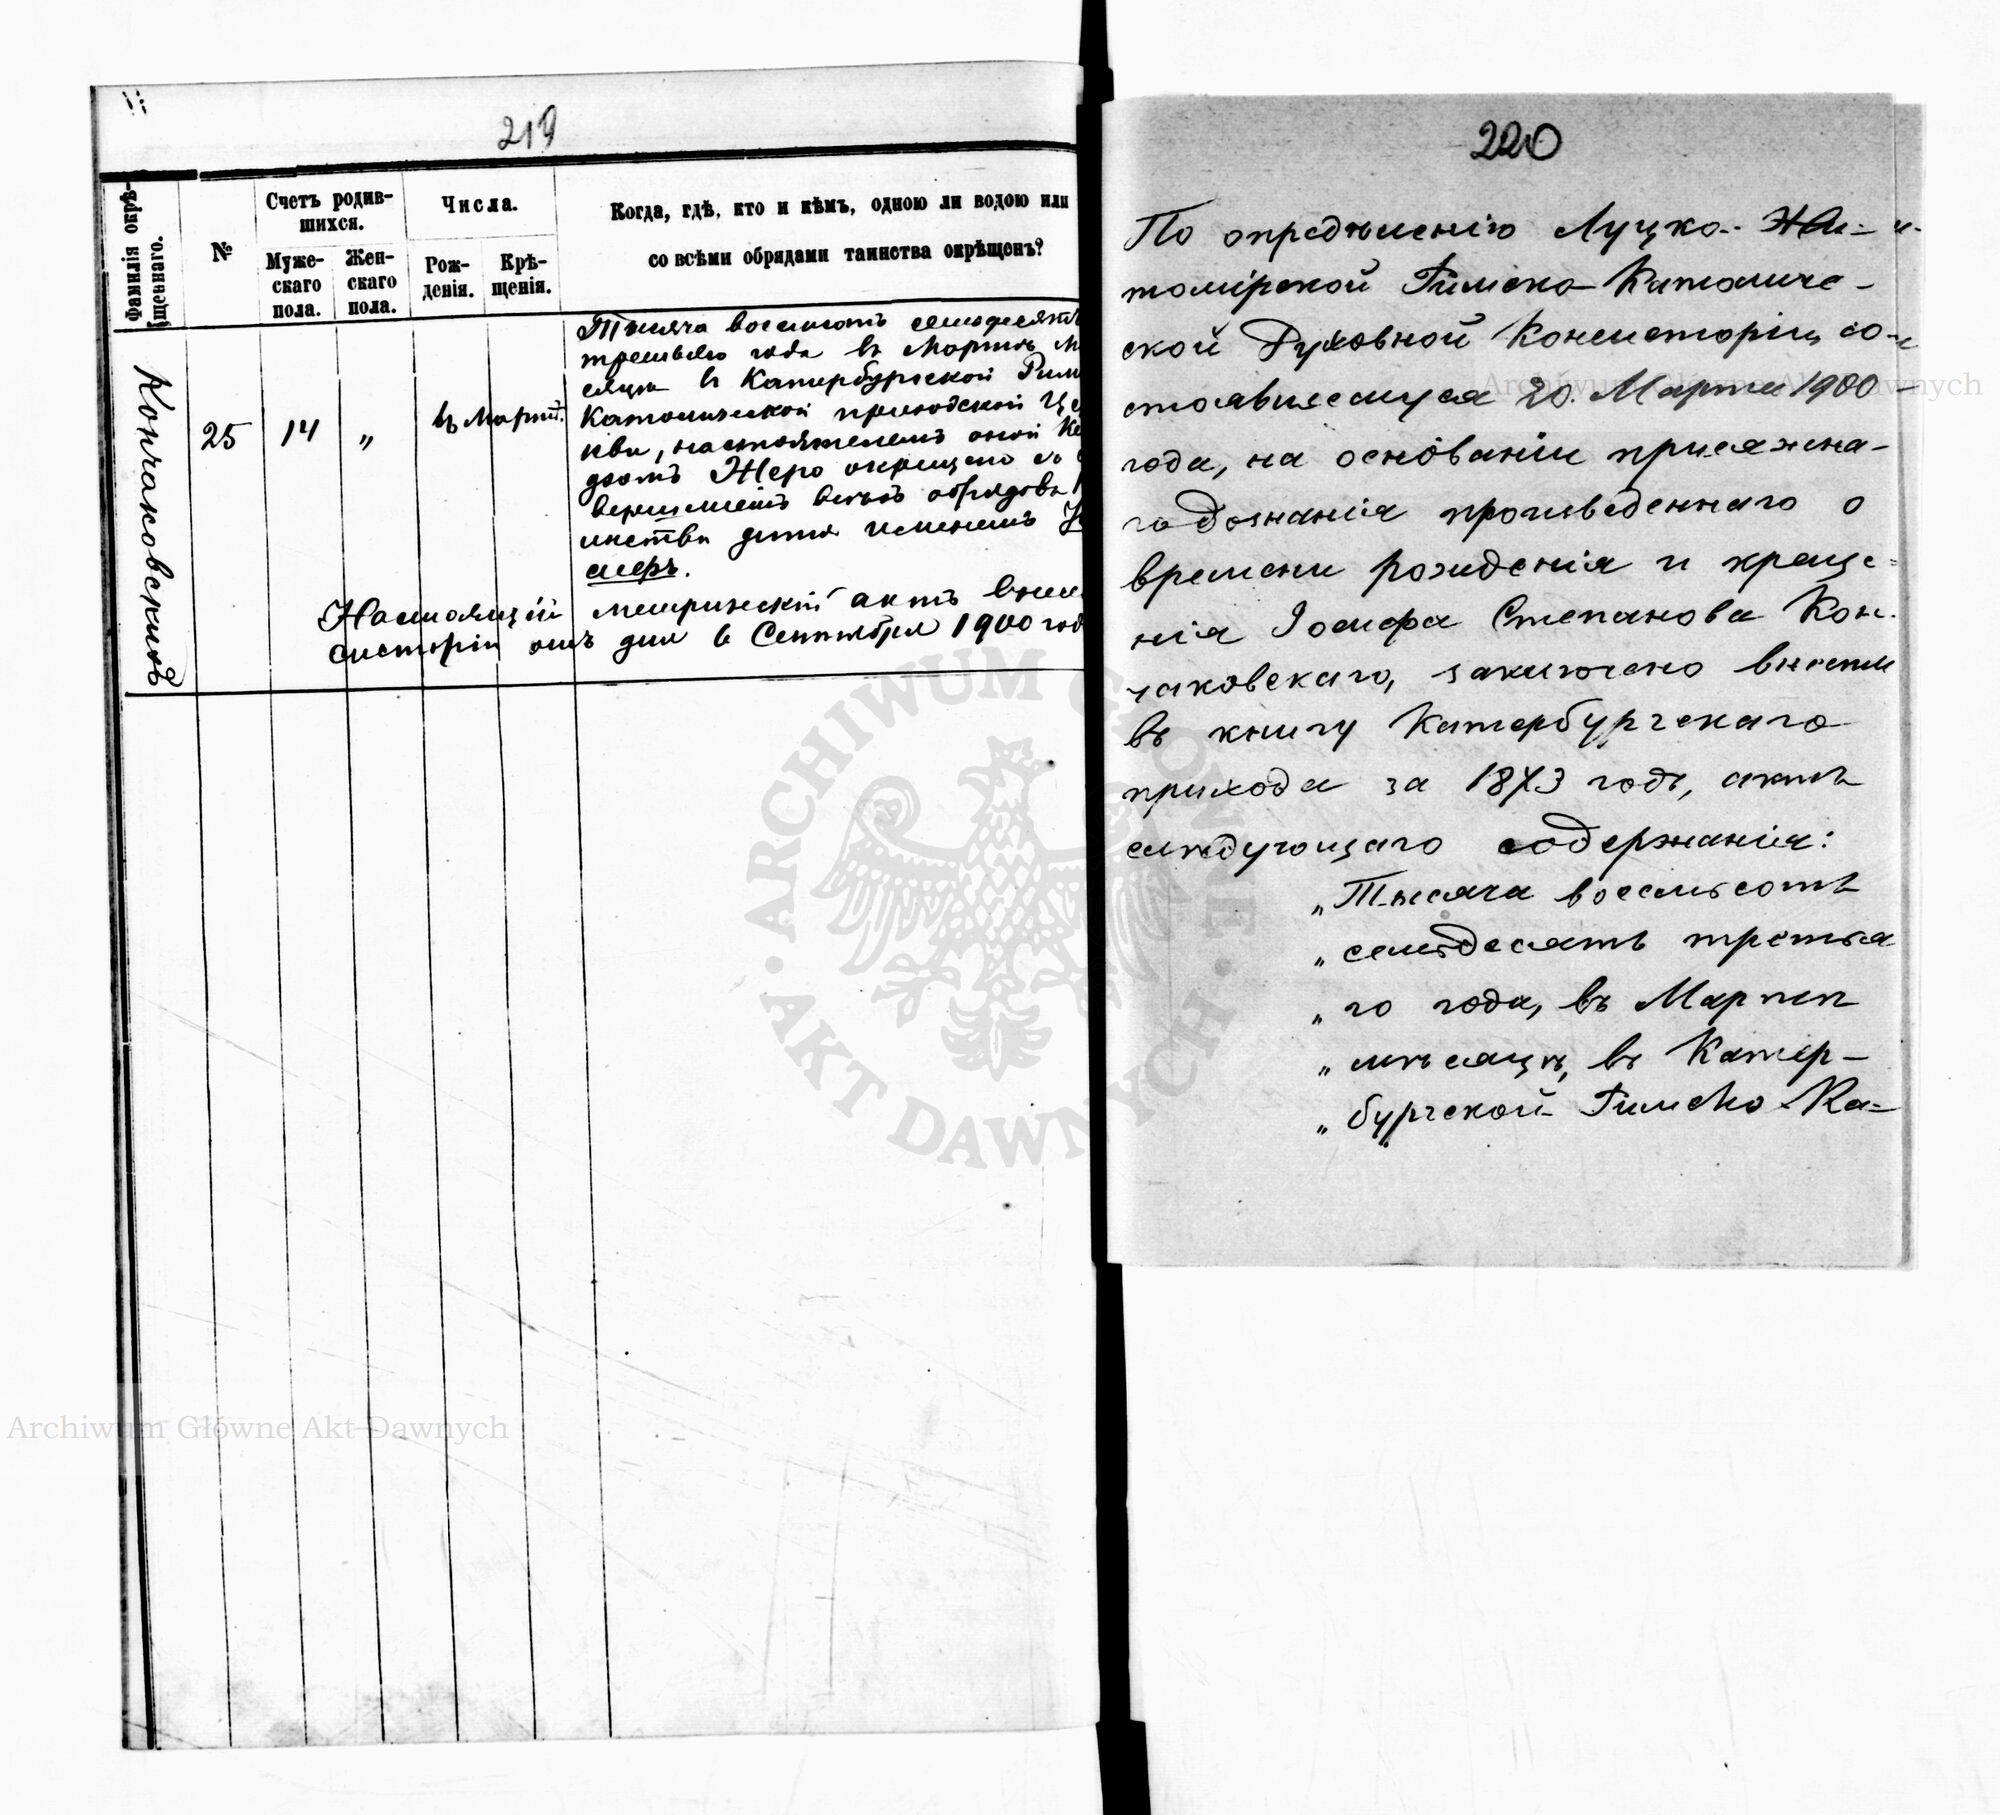 219
Фамилія окрѣ-
щеннаго.
№
Счетъ родив-
шихся.
Муже-
скаго
пола.
Жен-
скаго
пола.
Числа.
Рож-
денія.
Крѣ-
щенія.
Когда, гдѣ, кто и кѣмъ, одною ли водою или
со всѣми обрядами таинства окрѣщенъ?
Кончаковскій
25
14
„
въ Мартѣ
Тысяча восемьсотъ семьдесятъ
третьяго года въ Мартѣ м
сяцѣ въ Катербургской Рим
Католической приходской Це
кви, настоятелемъ оной Кс
дзомъ Жеро окрещено съ
вершеніемъ всѣхъ обрядовъ
инства дитя именемъ
сифъ.
Настоящій метрическій актъ внес
систоріи отъ дня 6 Сентября 1900 год
220
По опредѣленію Луцко-Жи-
томірской Римско-Католиче-
ской Духовной Консисторіи, со-
стоявшемуся 20 Марта 1900
года, на основаніи присяжна-
го дознанія произведеннаго о
времени рожденія и креще-
нія Іосифа Степанова Кон-
чаковскаго, заключено внести
въ книгу Катербургскаго
прихода за 1873 годъ, актъ
слѣдующаго содержанія:
„Тысяча восемьсотъ
„семьдесятъ третья
„го года, въ Мартѣ
„мѣсяцѣ, въ Катер-
„бургской Римско-Ка-
ARCHIWUM GŁÓWNE
AKT DAWNYCH
Archiwum Główne Akt Dawnych
Archiwum Główne Akt Dawnych